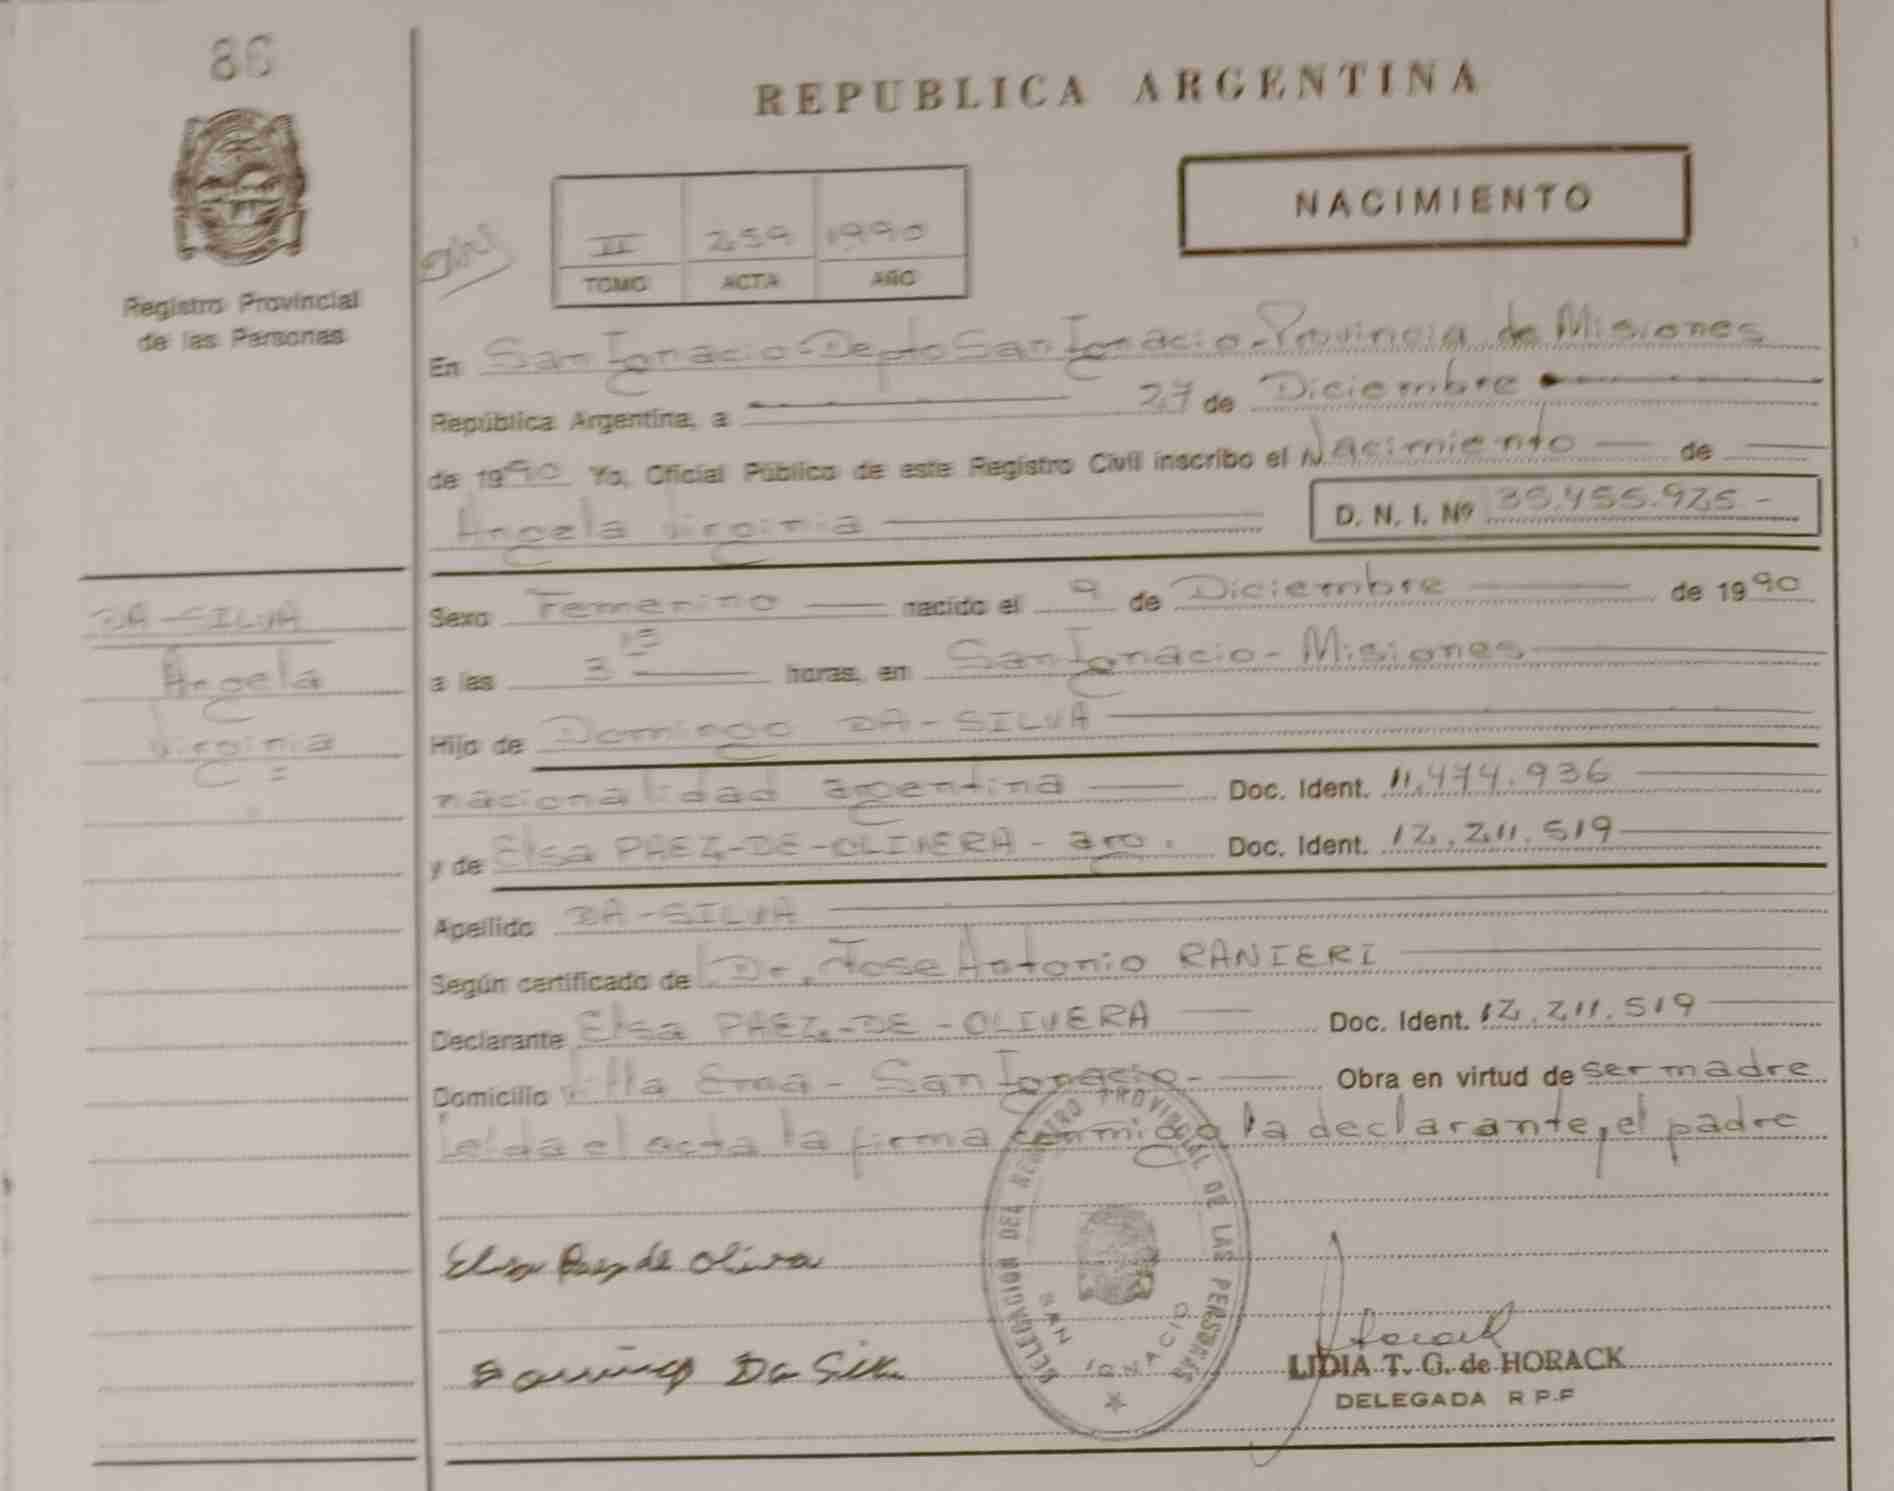 86
REPUBLICA ARGENTINA
NACIMIENTO
II 259 1990
TOMO ACTA AÑO
Registro Provincial
de las Personas
En San Ignacio-Depto San Ignacio-Provincia de Misiones
República Argentina, a 27 de Diciembre
de 1990 Yo, Oficial Público de este Registro Civil inscribo el Nacimiento de
Angela Virginia D. N. I. Nº 35.455.925-
DA-SILVA
Angela
Virginia
Sexo Femenino nacido el 9 de Diciembre de 1990
a las 3 15 horas, en San Ignacio-Misiones
Hijo de Domingo DA-SILVA
nacionalidad argentina Doc. Ident. 11.474.936
y de Elsa PAEZ-DE-OLIVERA - arg. Doc. Ident. 12.211.519
Apellido DA-SILVA
Según certificado de Dr. Jose Antonio RANIERI
Declarante Elsa PAEZ-DE-OLIVERA Doc. Ident. 12.211.519
Domicilio Villa Ema - San Ignacio- Obra en virtud de ser madre
leida el acta la firma conmigo la declarante, el padre
DELEGACION DEL REGISTRO PROVINCIAL DE LAS PERSONAS
SAN IGNACIO
Elsa Paez de Olivera
Domingo Da Silva
LIDIA T. G. de HORACK
DELEGADA R.P.P